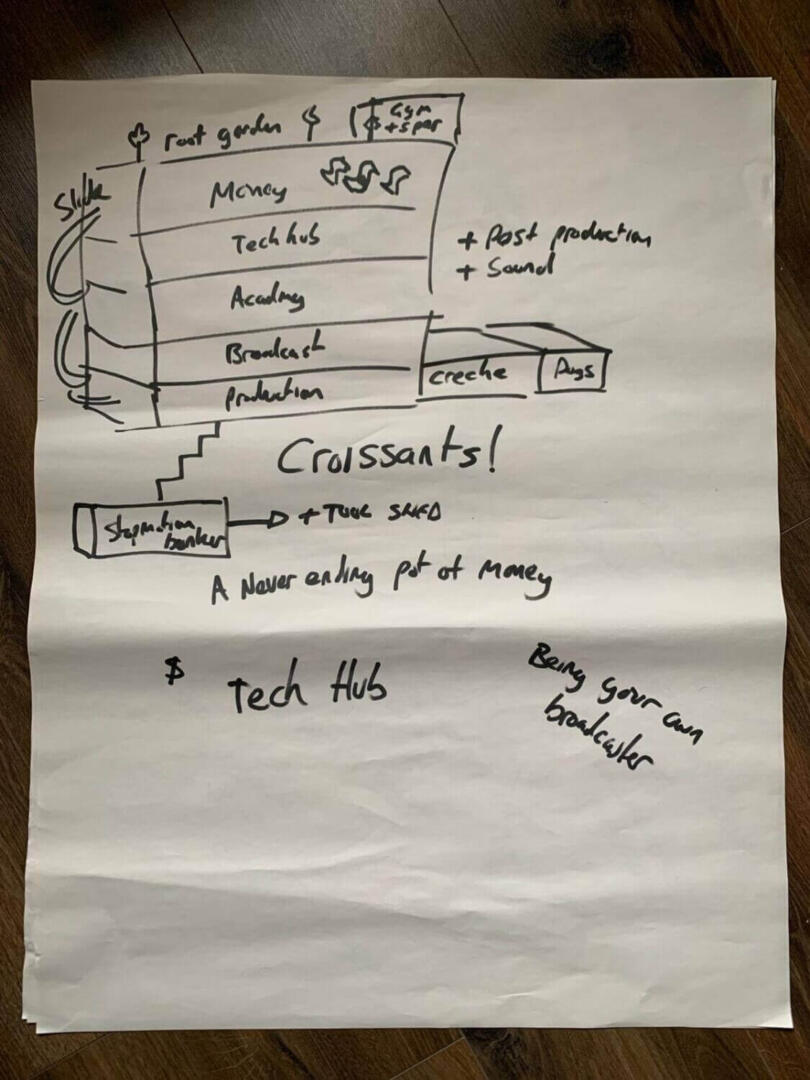 roof garden
Gym
+ spar
Slide
Money
Tech hub
+ Post production
+ Sound
Academy
Broadcast
creche
Dogs
Production
Croissants!
Stopmotion
bunker
+ TOOL SHED
A Never ending pot of Money
$
Tech Hub
Being your own
broadcaster